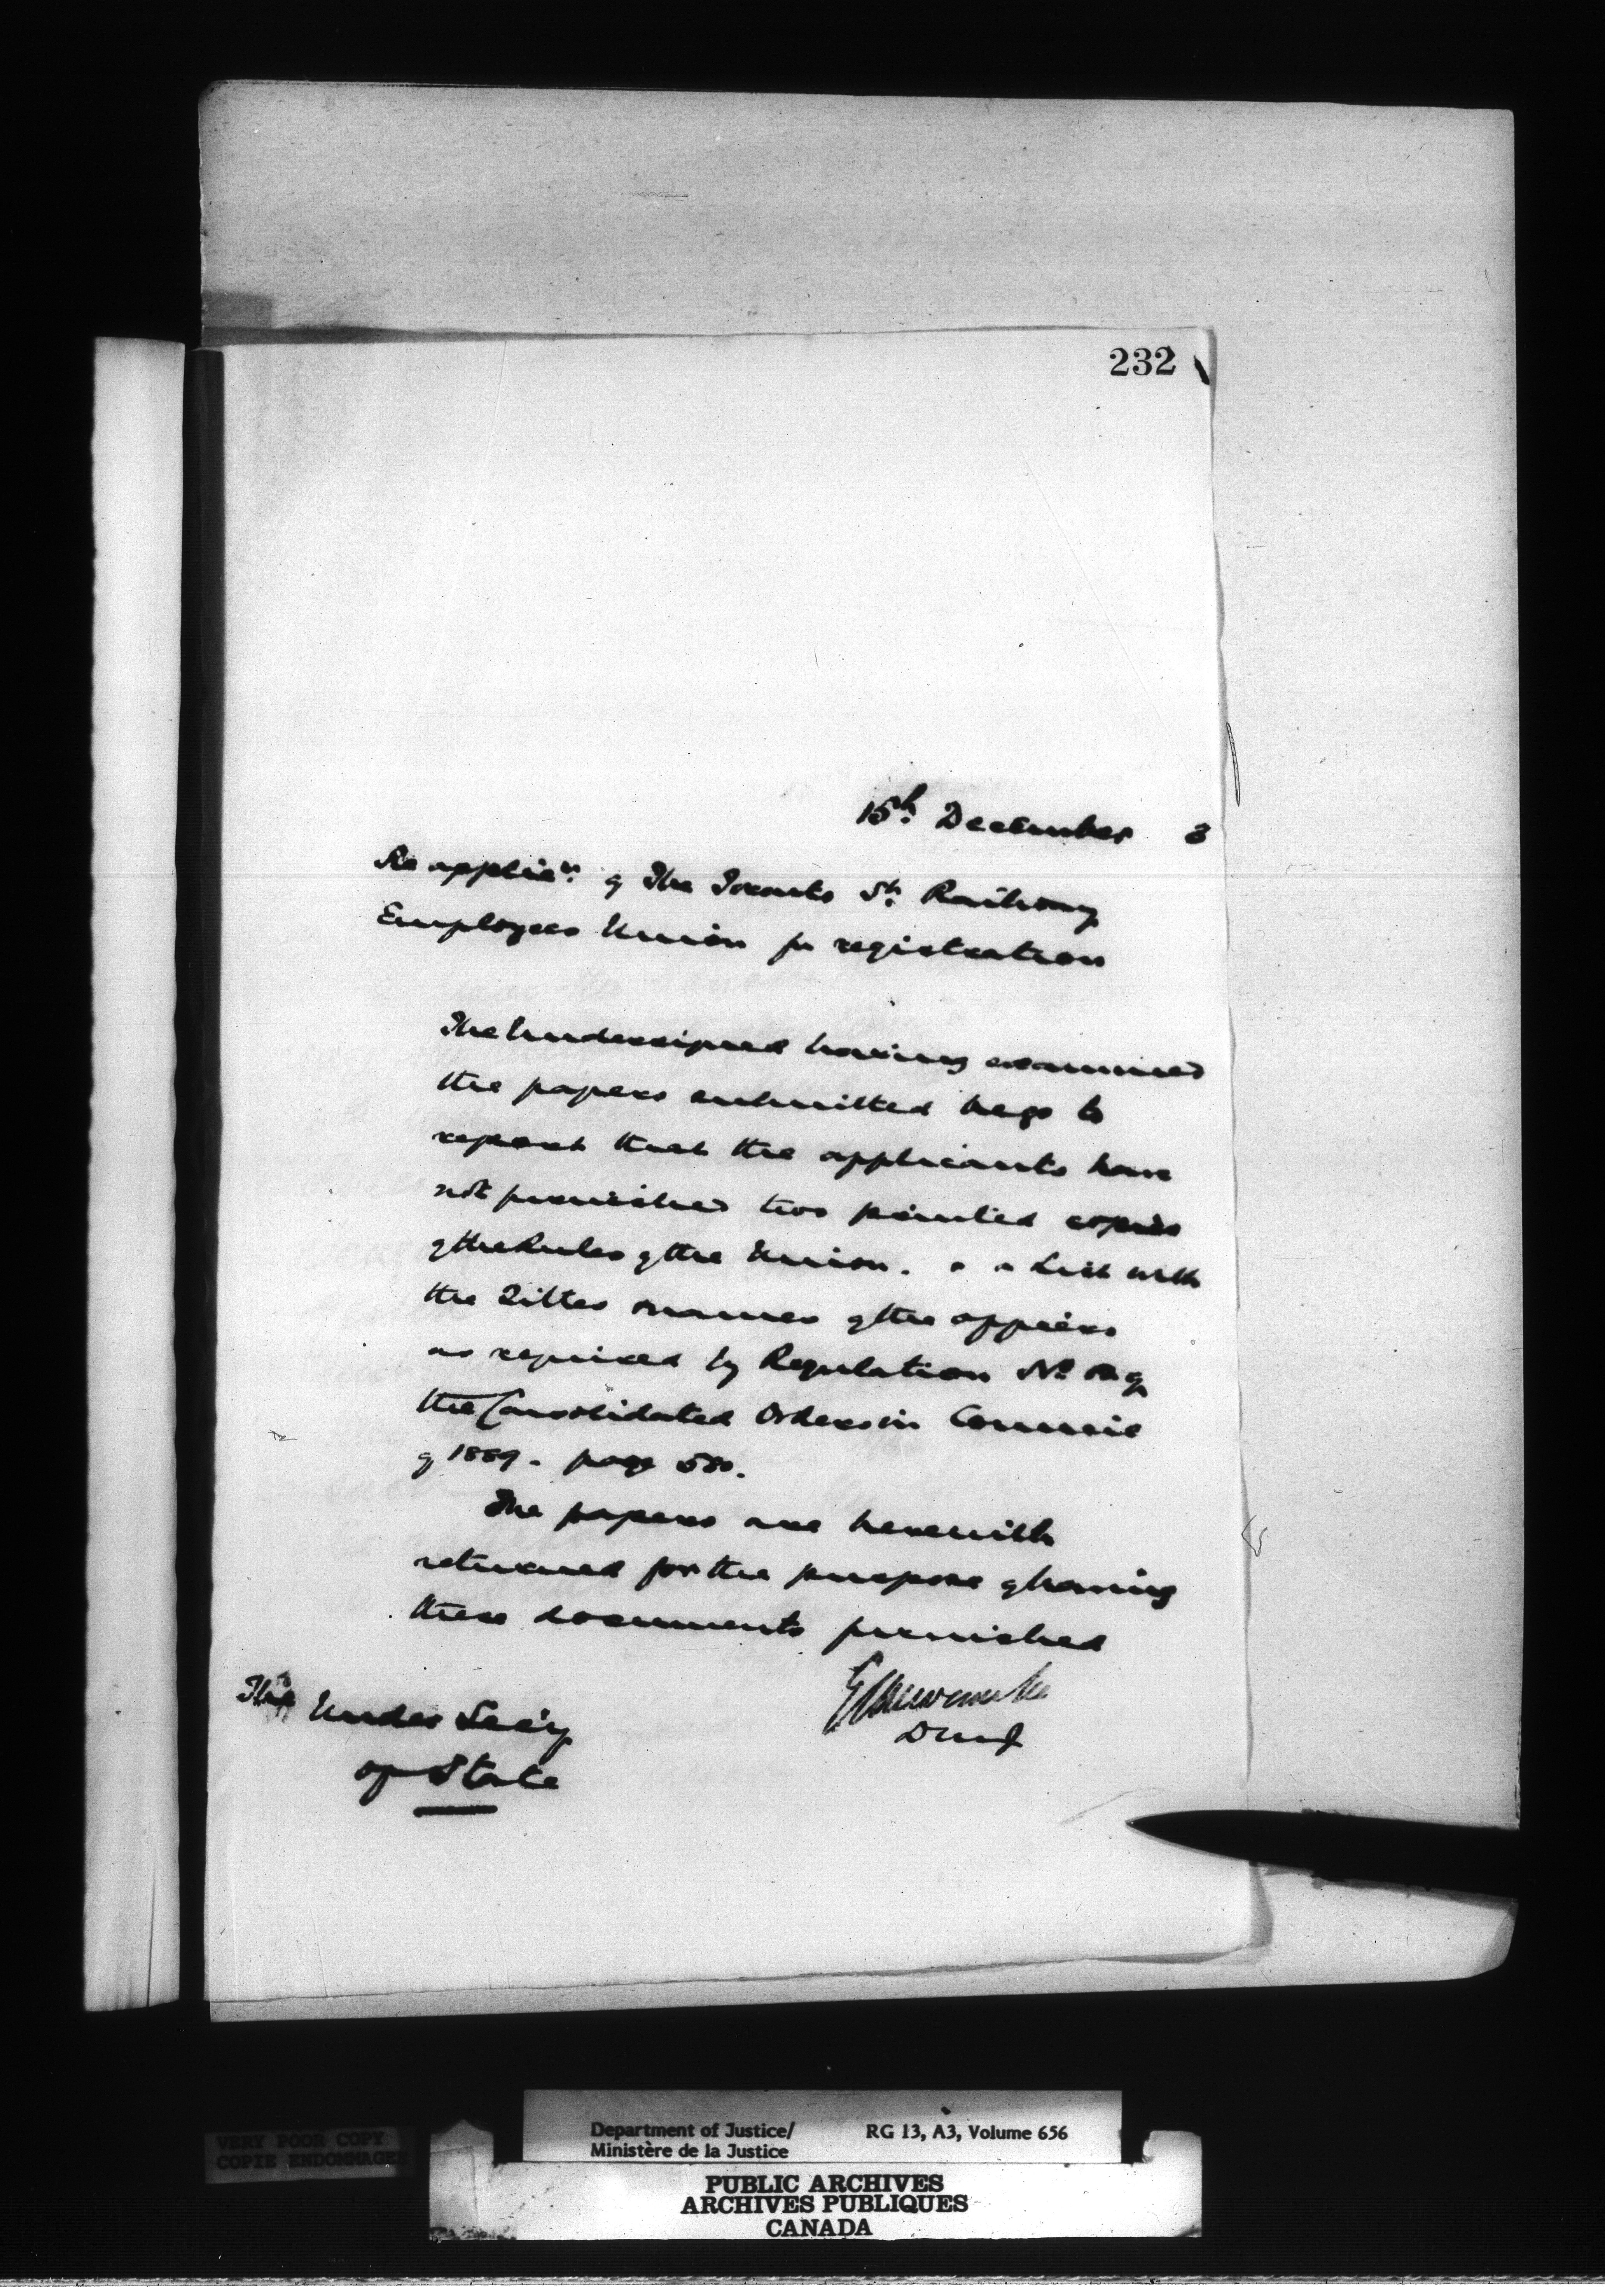 232
15th December 3
Re applicn. of The Toronto St. Railway
Employees Union for registration
The Undersigned having examined
the papers submitted begs to
report that the applicants have
not furnished two printed copies
of the Rules of the Union. or a List with
the Titles & names of the officers
as required by Regulation No. of
the Consolidated Orders in Council
of 1889. page 580.
The papers are herewith
returned for the purpose of having
these documents furnished
DMJ
The Under Secy
of State
VERY POOR COPY
COPIE ENDOMMAGEE
Department of Justice/ RG 13, A3, Volume 656
Ministère de la Justice
PUBLIC ARCHIVES
ARCHIVES PUBLIQUES
CANADA